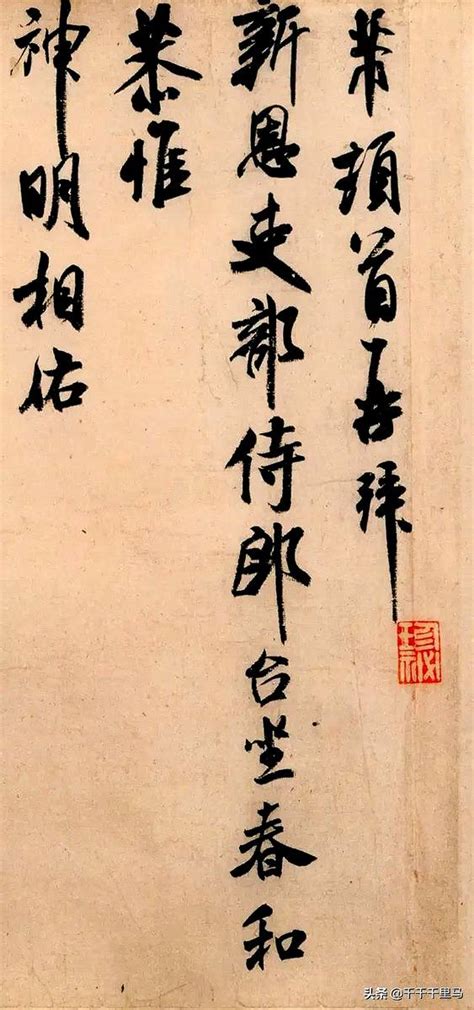 芾頓首再拜
新恩吏部侍郎台坐春和
恭惟
神明相佑
头条 @千千千里马